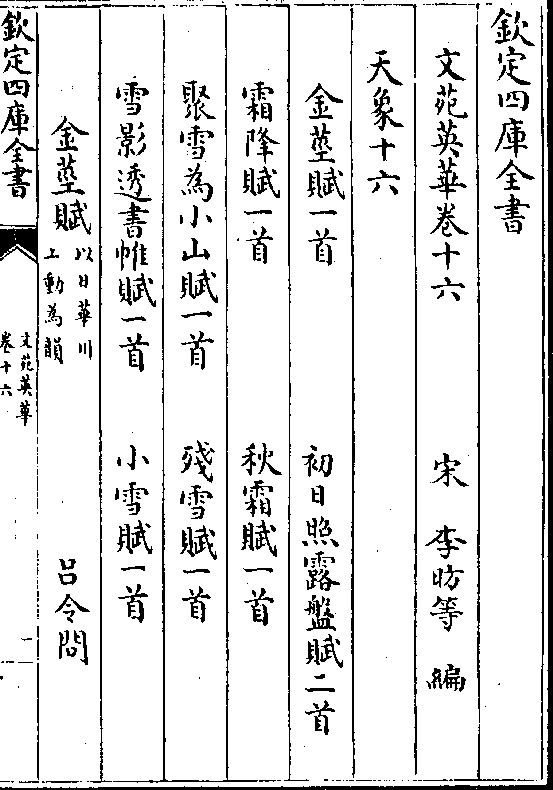 欽定四庫全書
文苑英華卷十六 宋 李昉等 編
天象十六
金莖賦一首 初日照露盤賦二首
霜降賦一首 秋霜賦一首
聚雪為小山賦一首 殘雪賦一首
雪影透書帷賦一首 小雪賦一首
金莖賦 以日華川上動為韻 呂令問
欽定四庫全書
文苑英華
卷十六
一